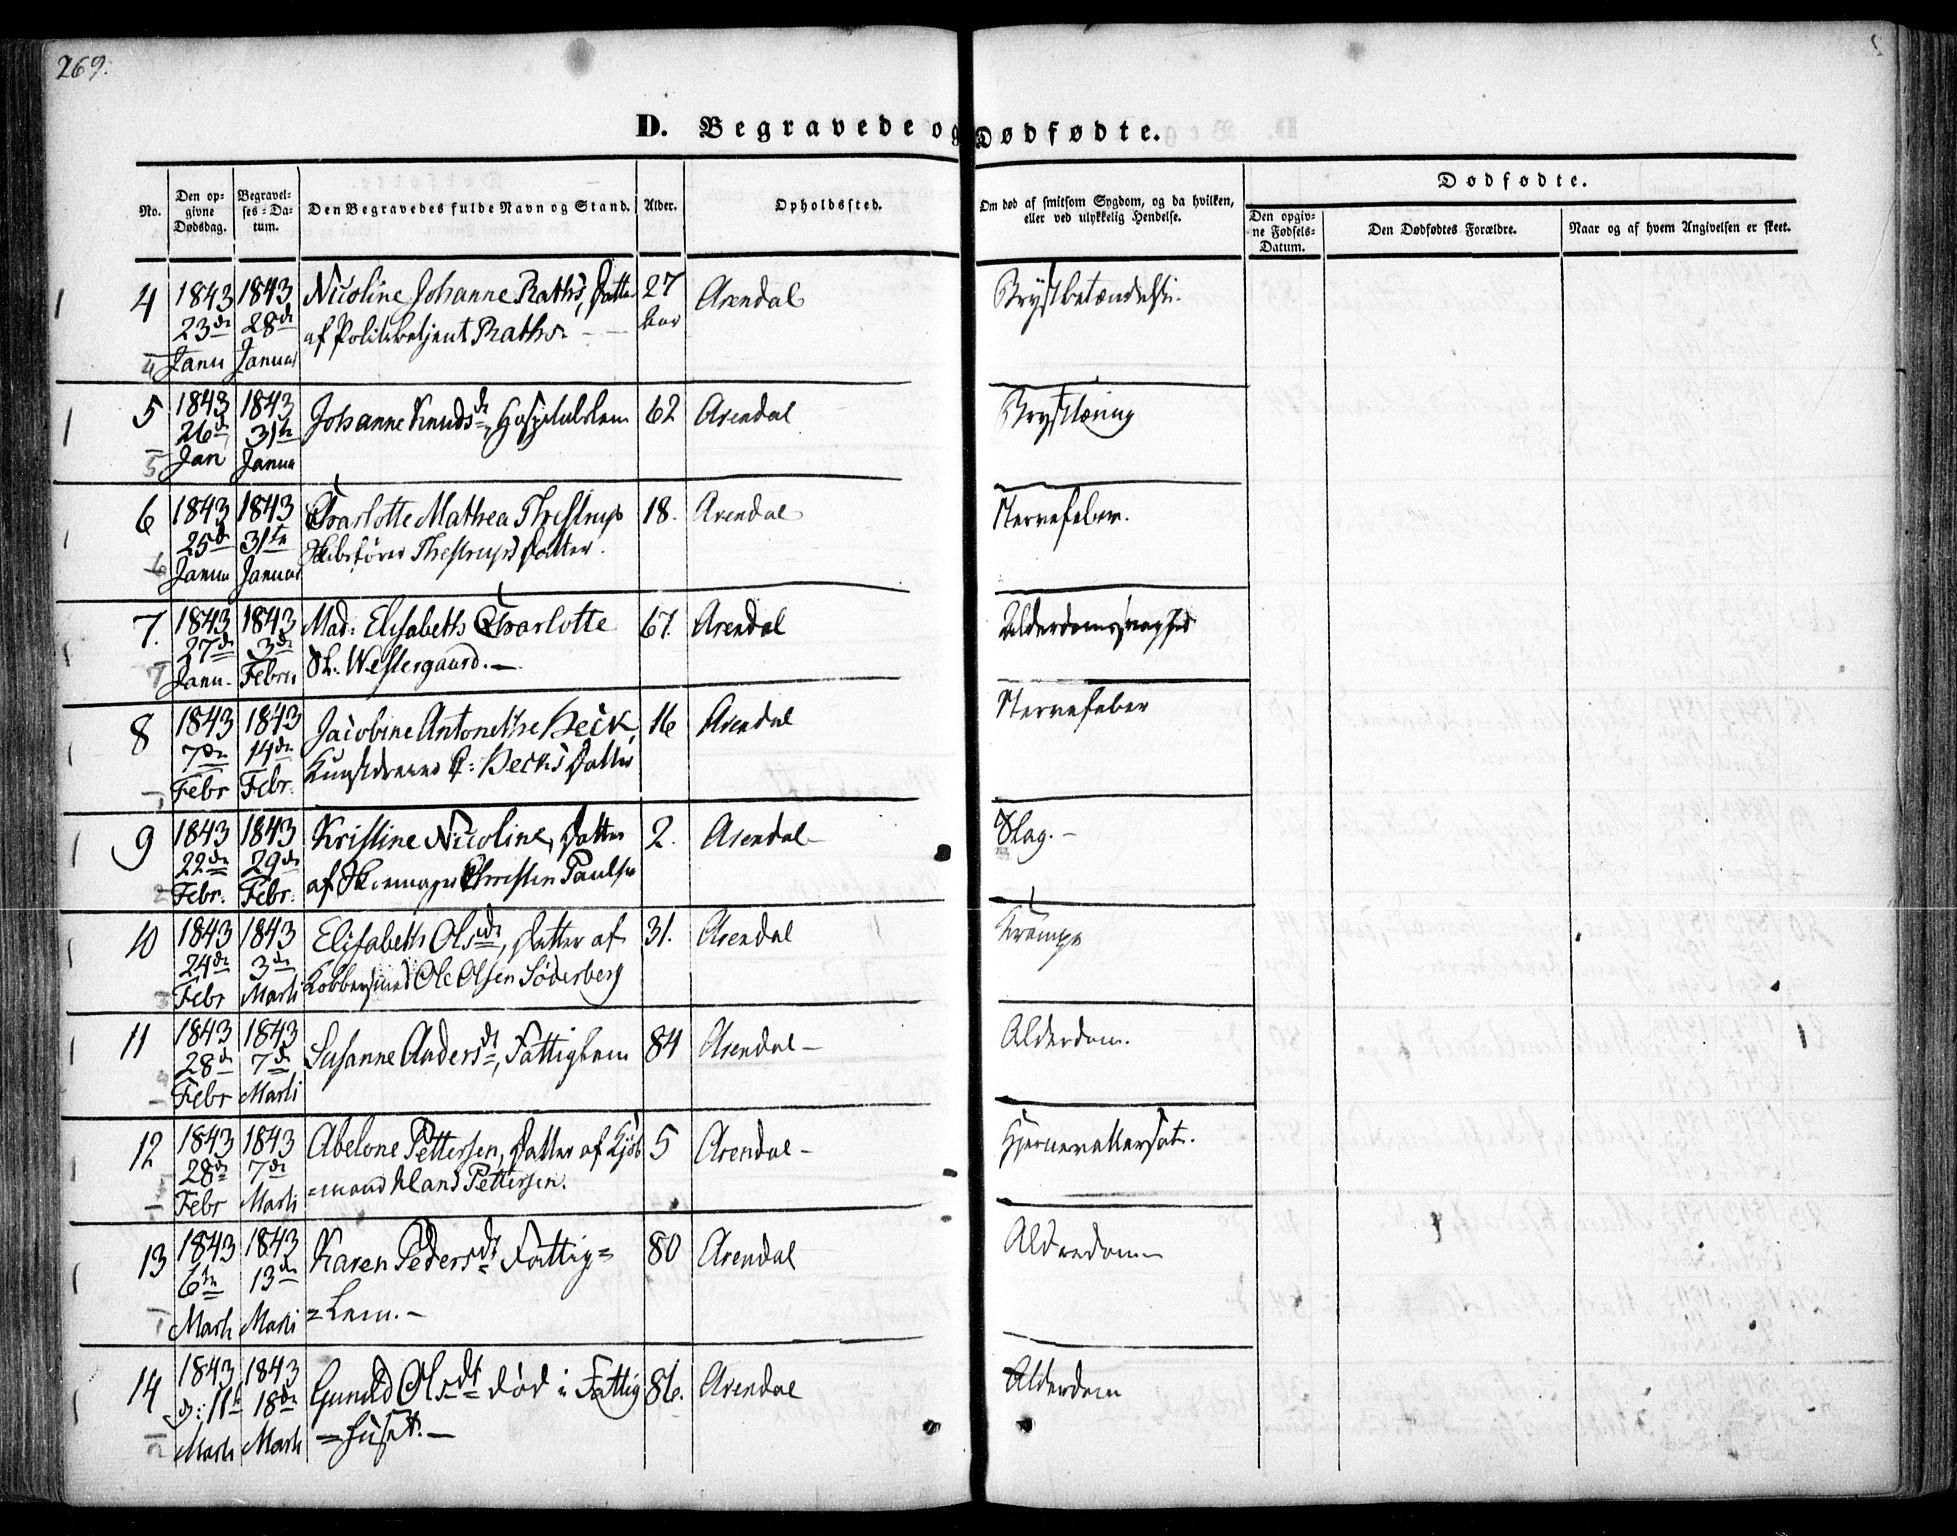 269.
D. Begravede og Dødfødte.
No.
Den opgivne Dødsdag.
Begravelses-Datum.
Den Begravedes fulde Navn og Stand.
Alder.
Opholdssted.
Om død af smitsom Sygdom, og da hvilken, eller ved ulykkelig Hendelse.
Dødfødte.
Den opgivne Fødsels-Datum.
Den Dødfødtes Forældre.
Naar og af hvem Angivelsen er skeet.
4 1843 1843 Nicoline Johanne Raths, Datter 27 Arendal Brystbetændelse.
23de 28de af Politibetjent Raths Aar
Janu Januar
5 1843 1843 Johanne Knudsdr, Hospitalslem 62 Arendal Brysttæring
26d 31te
Jan Janua
6 1843 1843 Charlotte Mathea Thestrup 18. Arendal Nervefeber.
25d 31te Skibsfører Thestrups Datter.
Janu Januar
7. 1843 1843 Mad: Elisabeth Charlotte 67. Arendal Alderdomssvaghed
27de 3de Sl. Westergaard.
Janu. Febru
8 1843 1843 Jacobine Antonethe Heck 16 Arendal Nervefeber
7de 14de Hecks Datter
Febr Febr.
9 1843 1843 Kristine Nicoline, Datter 2. Arendal Slag.
22de 29de af Skomager Christen Paulsen
Febr. Febr.
10 1843 1843 Elisabeth Olsdr, Datter af 31. Arendal Krampe
24de 3de Kobbersmed Ole Olsen Söderberg
Febr Marti
11 1843 1843 Susanne Andersdt, Fattiglem 84 Arendal Alderdom.
28d 7de
Febr Marti
12 1843 1843 Abelone Pettersen, Datter af Kjøb 5 Arendal Hjernevattersot.
28de 7de =mand Hans Pettersen.
Febr Marti
13 1843 1843 Karen Pedersdt Fattig= 80 Arendal Alderdom
6te 13de =Lem.
Marti Marti
14 1843 1843 Gunild Olsdt død i Fattig 86. Arendal Alderdom
d: 11te 18de =huset.
Marti Marti